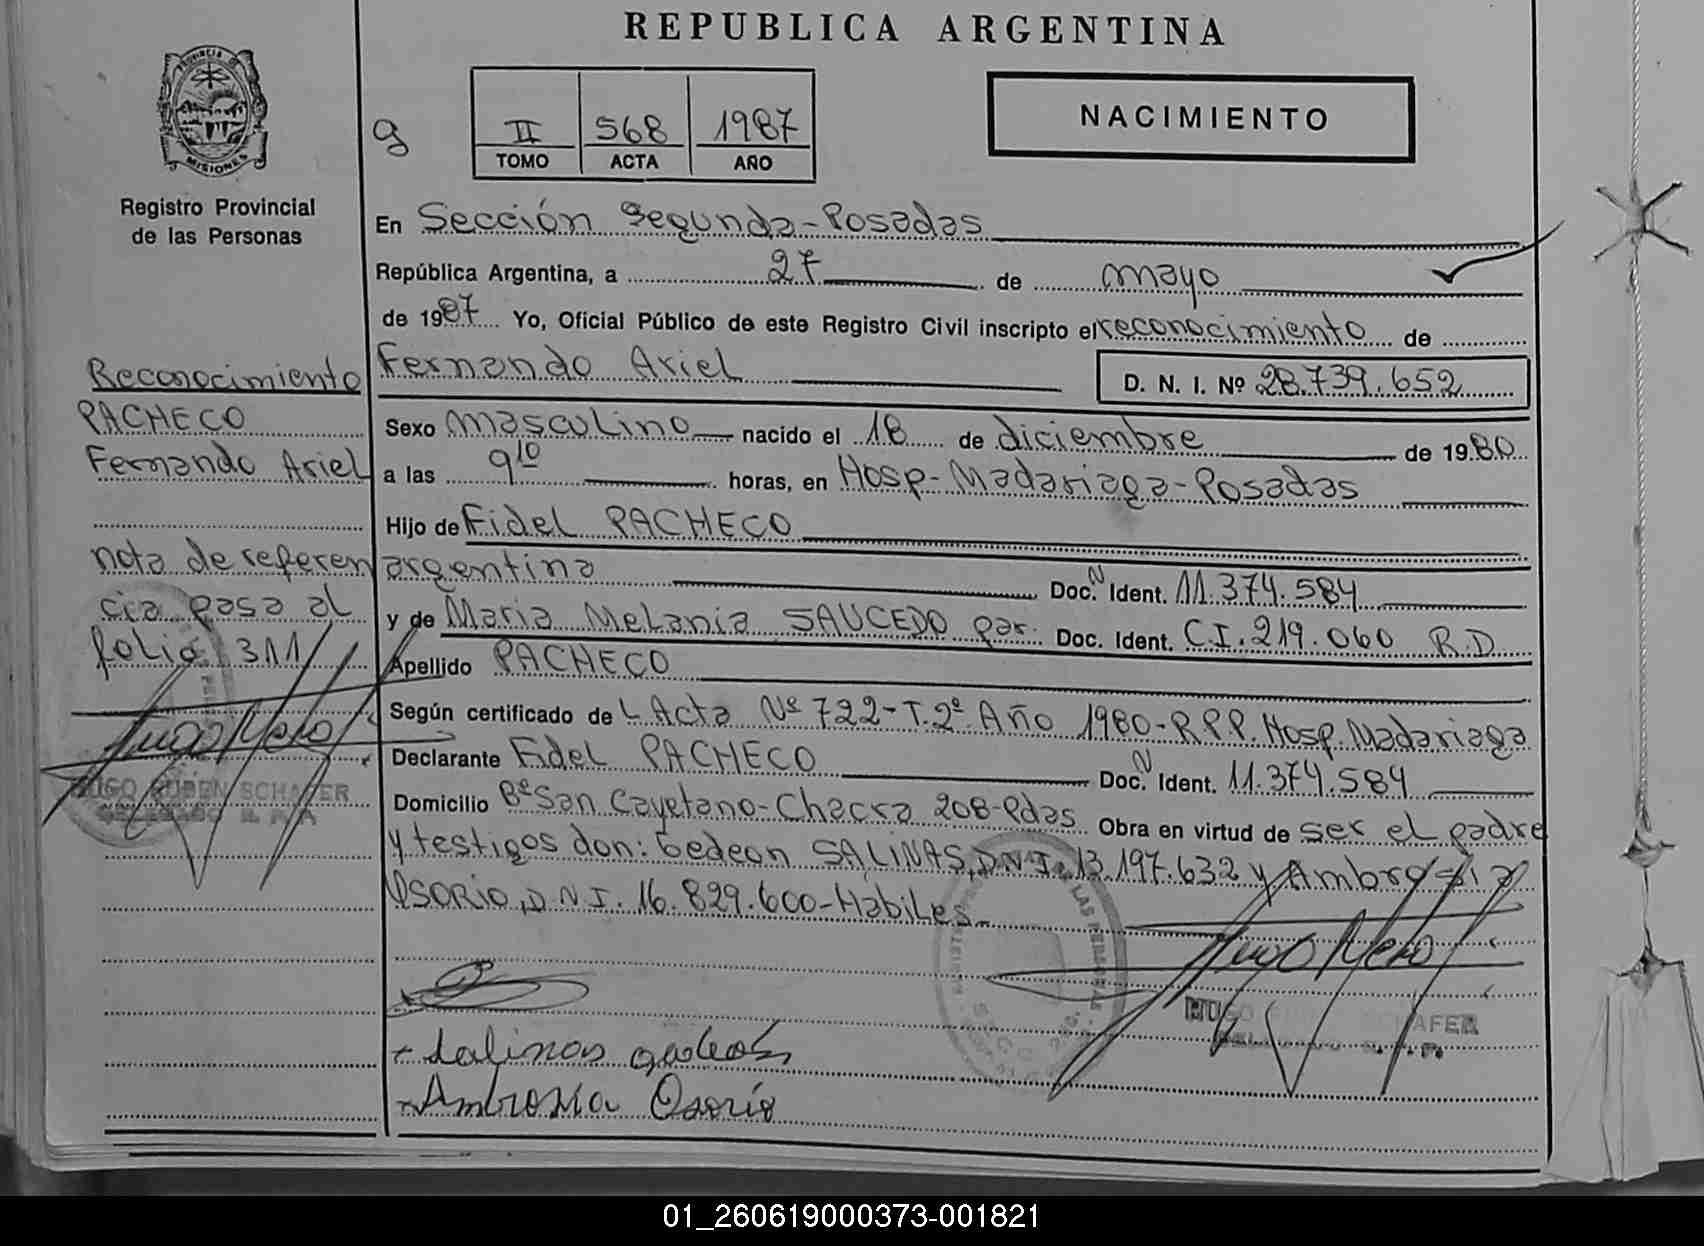 REPUBLICA ARGENTINA
PROVINCIA DE
MISIONES
Registro Provincial
de las Personas
g
II 568 1987
TOMO ACTA AÑO
NACIMIENTO
En Sección Segunda-Posadas
República Argentina, a 27 de mayo
de 1987 Yo, Oficial Público de este Registro Civil inscripto el reconocimiento de
Fernando Ariel D. N. I. Nº 28.739.652
Sexo Masculino nacido el 18 de diciembre de 1980
a las 9 10 horas, en Hosp-Madariaga-Posadas
Hijo de Fidel PACHECO
argentina Doc. N Ident. 11.374.584
y de Maria Melania SAUCEDO par. Doc. Ident. C.I. 219.060 R.D.
Apellido PACHECO
Según certificado de L.Acta Nº 722-T.2º Año 1980-R.P.P. Hosp. Madariaga
Declarante Fidel PACHECO Doc. N Ident. 11.374.584
Domicilio Bº San Cayetano-Chacra 208-Pdas Obra en virtud de ser el padre
y testigos don: Gedeon SALINAS, D.N.I. 13.197.632 y Ambrosia
OSORIO, D.N.I. 16.829.600-Hábiles-
Salinas gedeon
Ambrosia Osorio
Reconocimiento
PACHECO
Fernando Ariel
nota de referen
cia pasa al
folio 311
HUGO RUBEN SCHAFER
DELEGADO
HUGO SCHAFER
01_260619000373-001821